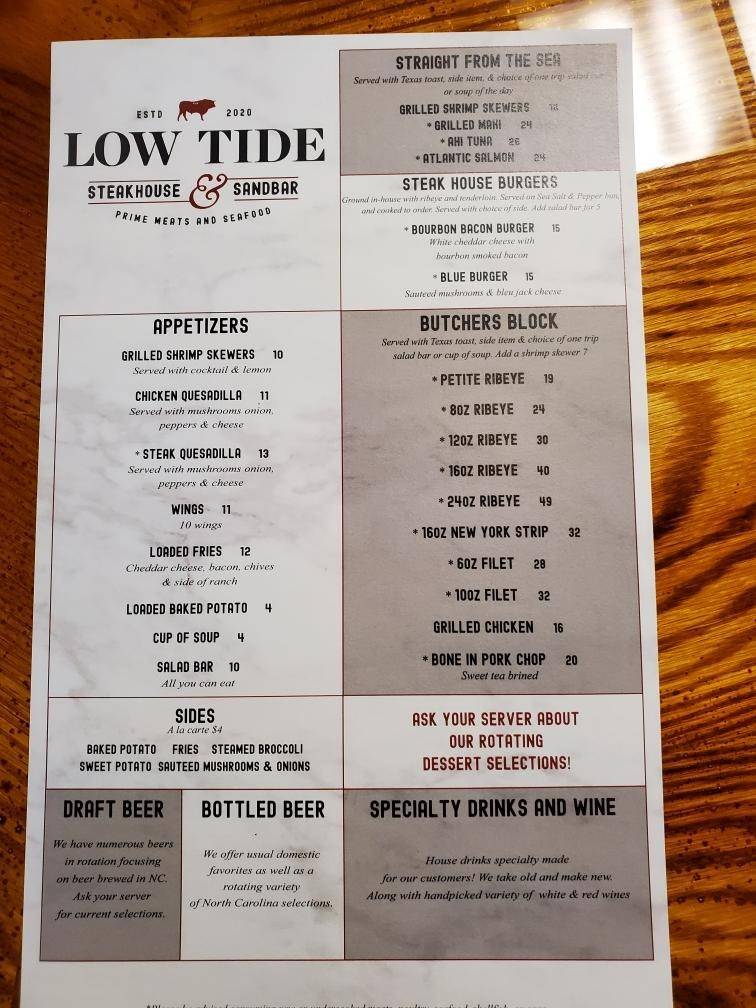 ESTD 2020
LOW TIDE
STEAKHOUSE & SANDBAR
PRIME MEATS AND SEAFOOD
STRAIGHT FROM THE SEA
Served with Texas toast, side item, & choice of one trip salad bar
or soup of the day
GRILLED SHRIMP SKEWERS
* GRILLED MAHI 24
* AHI TUNA 26
* ATLANTIC SALMON 24
STEAK HOUSE BURGERS
Ground in-house with ribeye and tenderloin. Served on Sea Salt & Pepper bun,
and cooked to order. Served with choice of side. Add salad bar for 5
* BOURBON BACON BURGER 15
White cheddar cheese with
bourbon smoked bacon
* BLUE BURGER 15
Sauteed mushrooms & bleu jack cheese
APPETIZERS
GRILLED SHRIMP SKEWERS 10
Served with cocktail & lemon
CHICKEN QUESADILLA 11
Served with mushrooms onion,
peppers & cheese
* STEAK QUESADILLA 13
Served with mushrooms onion,
peppers & cheese
WINGS 11
10 wings
LOADED FRIES 12
Cheddar cheese, bacon, chives
& side of ranch
LOADED BAKED POTATO 4
CUP OF SOUP 4
SALAD BAR 10
All you can eat
BUTCHERS BLOCK
Served with Texas toast, side item & choice of one trip
salad bar or cup of soup. Add a shrimp skewer 7
* PETITE RIBEYE 19
* 8OZ RIBEYE 24
* 12OZ RIBEYE 30
* 16OZ RIBEYE 40
* 24OZ RIBEYE 49
* 16OZ NEW YORK STRIP 32
* 6OZ FILET 28
* 10OZ FILET 32
GRILLED CHICKEN 16
* BONE IN PORK CHOP 20
Sweet tea brined
SIDES
A la carte $4
BAKED POTATO FRIES STEAMED BROCCOLI
SWEET POTATO SAUTEED MUSHROOMS & ONIONS
ASK YOUR SERVER ABOUT
OUR ROTATING
DESSERT SELECTIONS!
DRAFT BEER
We have numerous beers
in rotation focusing
on beer brewed in NC.
Ask your server
for current selections.
BOTTLED BEER
We offer usual domestic
favorites as well as a
rotating variety
of North Carolina selections.
SPECIALTY DRINKS AND WINE
House drinks specialty made
for our customers! We take old and make new.
Along with handpicked variety of white & red wines